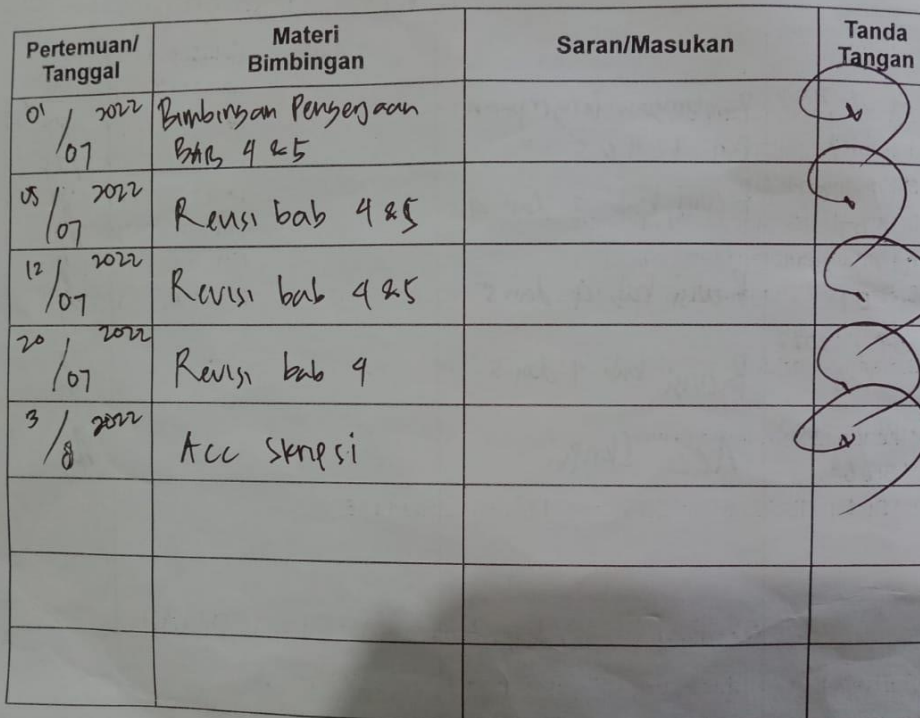 Pertemuan/ Tanggal
Materi Bimbingan
Saran/Masukan
Tanda Tangan
01/07 2022
Bimbingan Pengerjaan
BAB 4 & 5
05/07 2022
Revisi bab 4 & 5
12/07 2022
Revisi bab 4 & 5
20/07 2022
Revisi bab 4
3/8 2022
Acc Skripsi